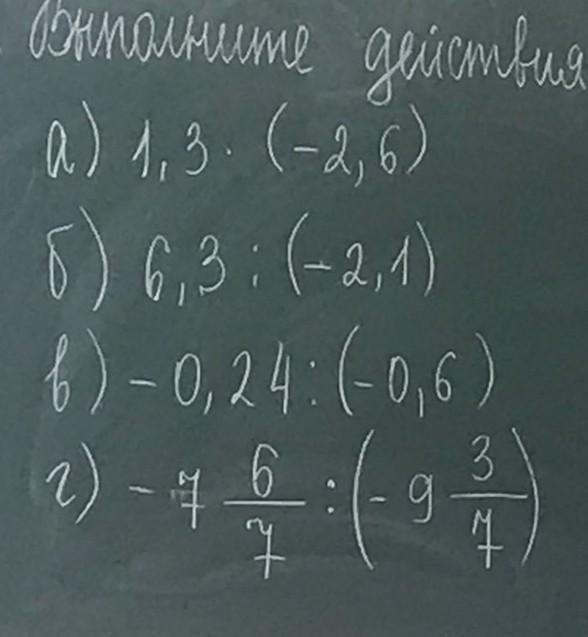 Выполните действия
а) 1,3 · (-2,6)
б) 6,3 : (-2,1)
в) -0,24 : (-0,6)
г) -7 6/7 : (-9 3/7)